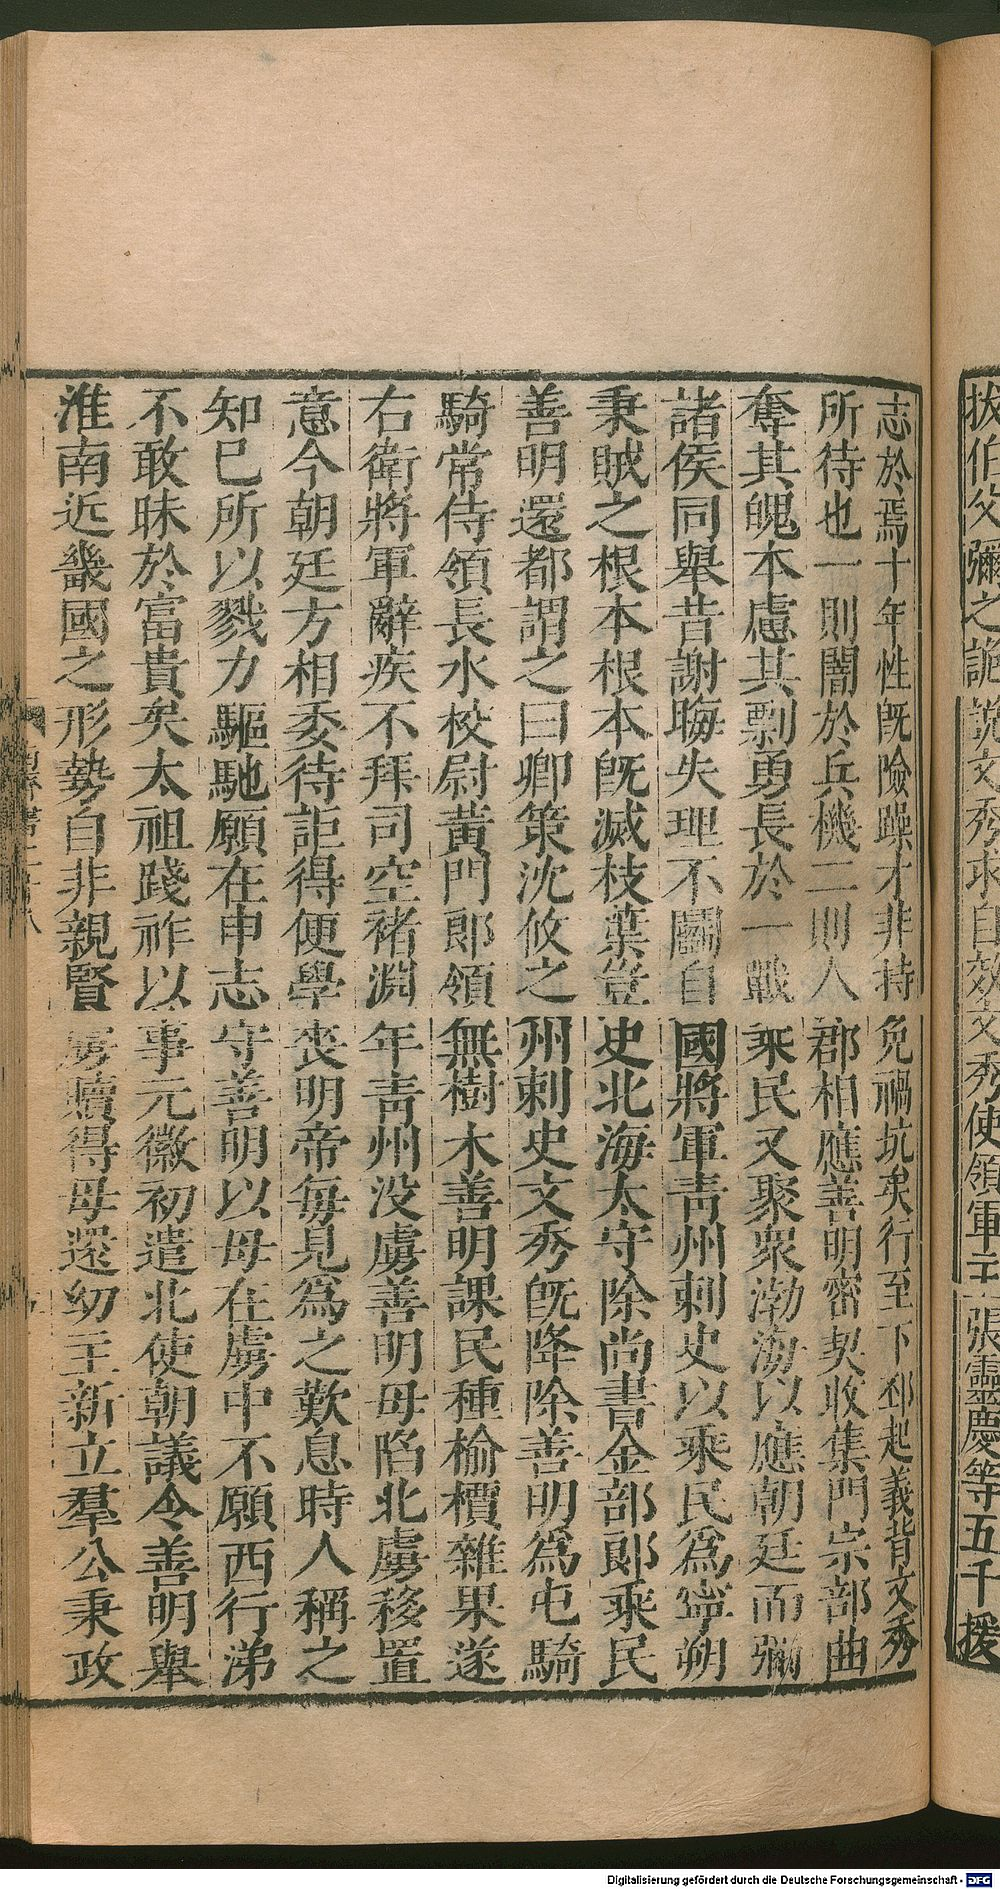 拔伯父彌之詭說文秀求自效文秀使領軍主張靈慶等五千援
志於焉十年性旣險躁才非持免禍坑矣行至下邳起義背文秀
所待也一則闇於兵機二則人郡相應善明密契收集門宗部曲
奪其魄本慮其剽勇長於一戰乘民又聚衆渤海以應朝廷而彌
諸侯同舉昔謝晦失理不鬬自國將軍青州刺史以乘民爲寧朔
秉賊之根本根本旣滅枝葉豈史北海太守除尚書金部郎乘民
善明還都謂之曰卿策沈攸之州刺史文秀旣降除善明爲屯騎
騎常侍領長水校尉黃門郎領無樹木善明課民種榆檟雜果遂
右衛將軍辭疾不拜司空褚淵年青州没虜善明母陷北虜移置
意今朝廷方相委待詎得便學喪明帝每見爲之歎息時人稱之
知巳所以戮力驅馳願在申志守善明以母在虜中不願西行涕
不敢昧於富貴矣太祖踐祚以事元徽初遣北使朝議令善明舉
淮南近畿國之形勢自非親賢虜贖得母還幼主新立羣公秉政
Digitalisierung gefördert durch die Deutsche Forschungsgemeinschaft - DFG